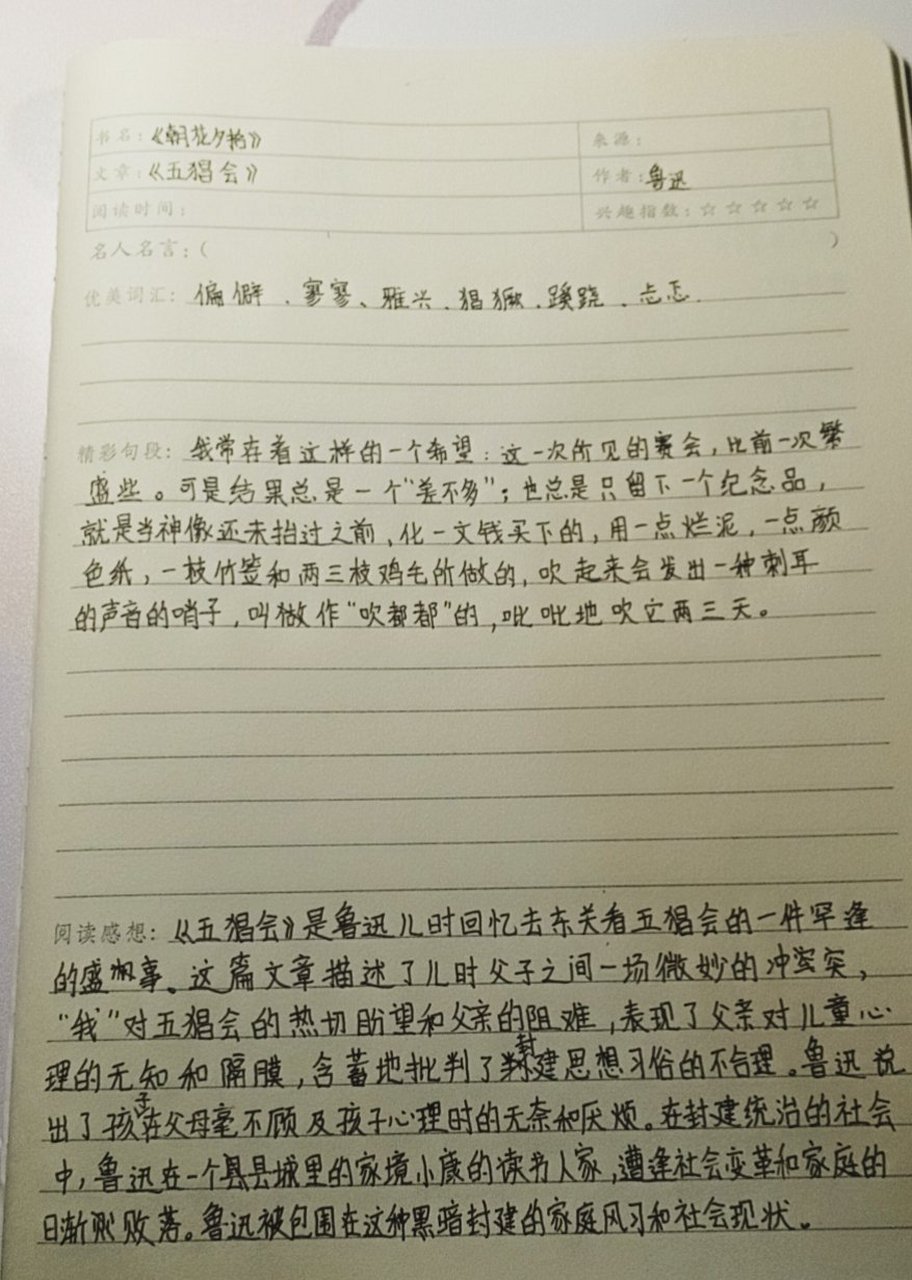 书名：《朝花夕拾》 来源：
文章：《五猖会》 作者：鲁迅
阅读时间： 兴趣指数：☆☆☆☆☆
名人名言：( )
优美词汇：偏僻、寥寥、雅兴、猖獗、蹊跷、忐忑.
精彩句段：我常存着这样的一个希望：这一次所见的赛会，比前一次繁
盛些。可是结果总是一个“差不多”；也总是只留下一个纪念品，
就是当神像还未抬过之前，化一文钱买下的，用一点烂泥，一点颜
色纸，一枝竹签和两三枝鸡毛所做的，吹起来会发出一种刺耳
的声音的哨子，叫做作“吹都都”的，吡吡地吹它两三天。
阅读感想：《五猖会》是鲁迅儿时回忆去东关看五猖会的一件罕逢
的盛事。这篇文章描述了儿时父子之间一场微妙的冲突，
“我”对五猖会的热切盼望和父亲的阻难，表现了父亲对儿童心
理的无知和隔膜，含蓄地批判了封建思想习俗的不合理。鲁迅说
出了孩子在父母毫不顾及孩子心理时的无奈和厌烦。在封建统治的社会
中，鲁迅在一个县县城里的家境小康的读书人家，遭逢社会变革和家庭的
日渐败落。鲁迅被包围在这种黑暗封建的家庭风习和社会现状。